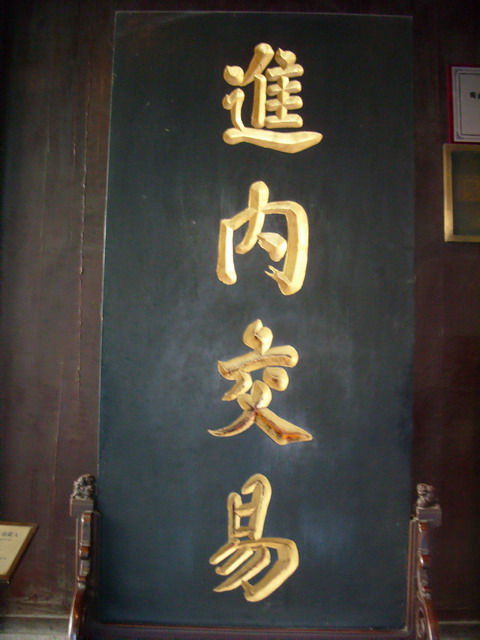 進內交易